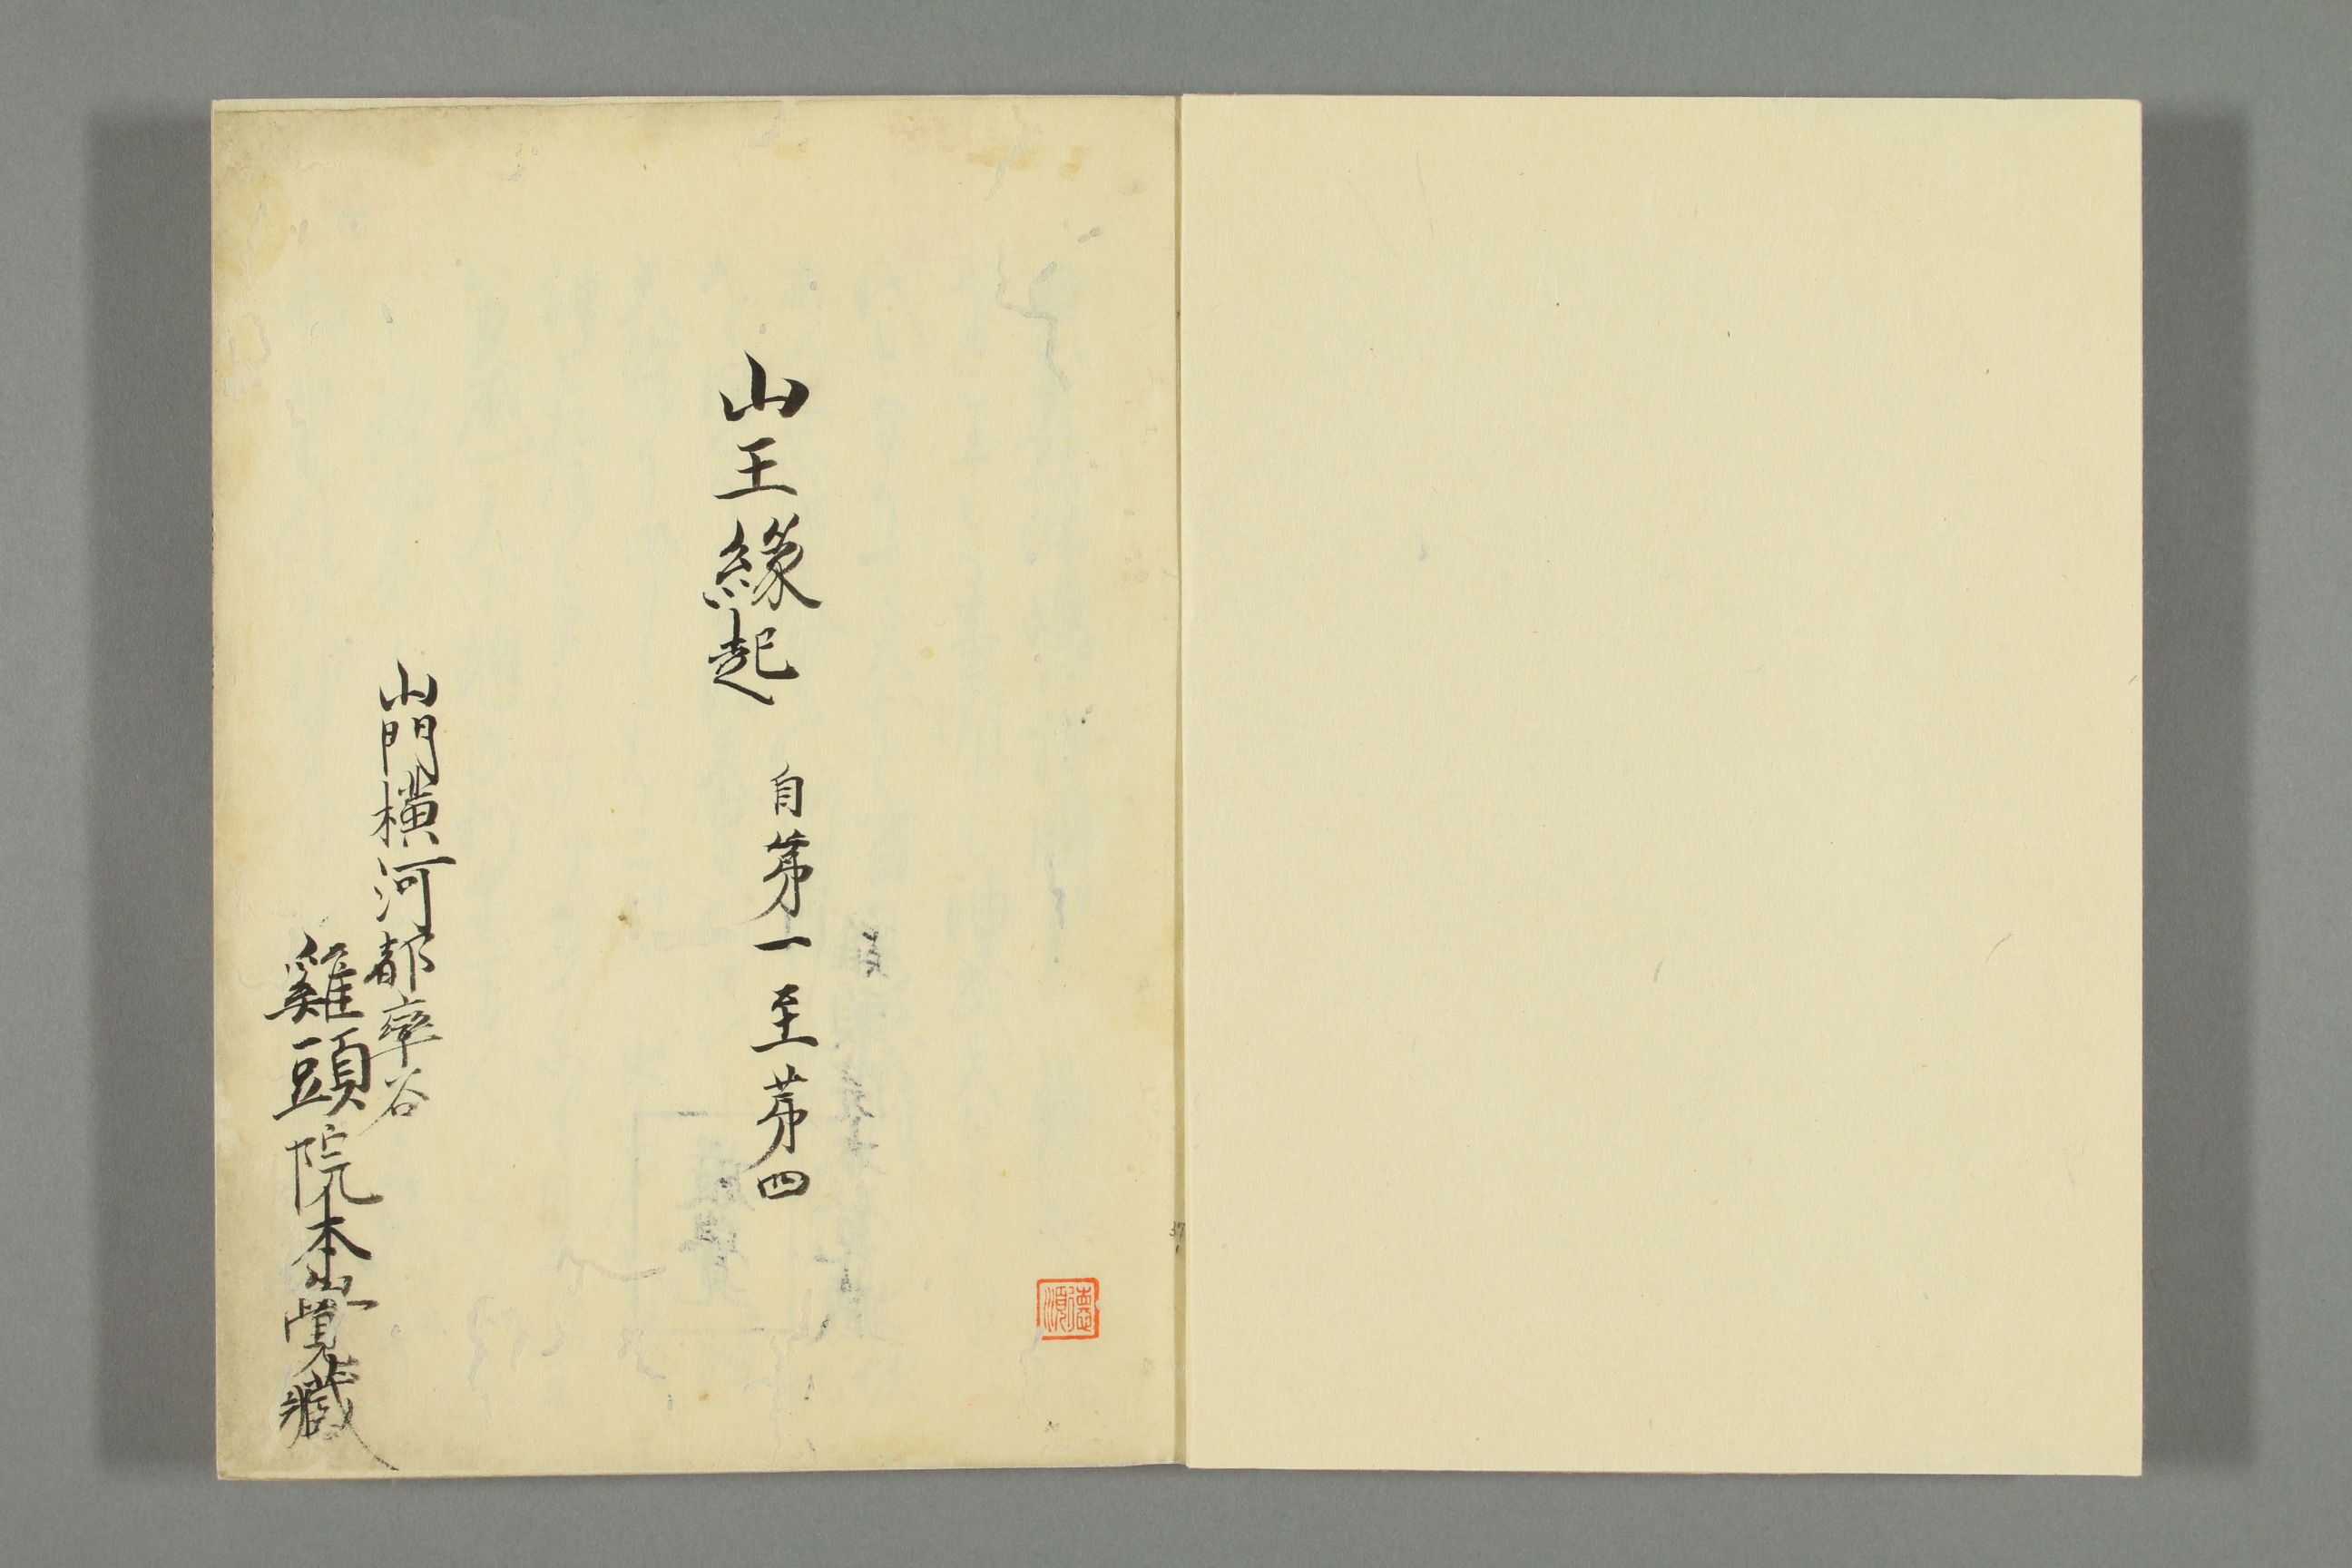 山王縁起
自第一至第四
山門横河都率谷
雞頭院本実覚蔵